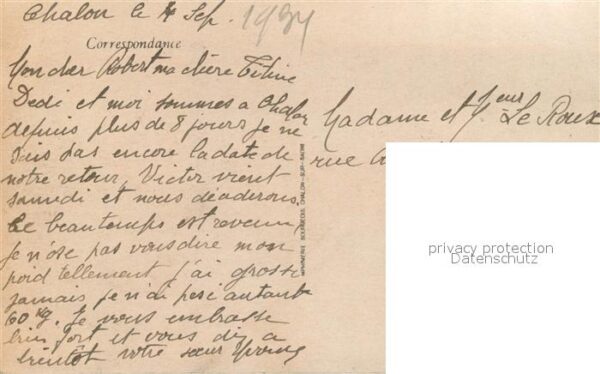 Chalon le 4 Sep. 1934
Correspondance
Mon cher Robert ma chère Titine
Dédé et moi sommes a Chalon
depuis plus de 8 jours je ne
sais pas encore la date de
notre retour, Victor vient
samedi et nous déciderons.
Le beau temps est revenu,
je n'ose pas vous dire mon
poid tellement j'ai grossi
jamais je n'ai pesé autant
60 kg. Je vous embrasse
bien fort et vous dis a
bientôt votre sœur Yvonne
Madame et Sieur Le Roux
rue
IMPRIMERIE BOURGEOIS, CHALON-SUR-SAONE
privacy protection
Datenschutz